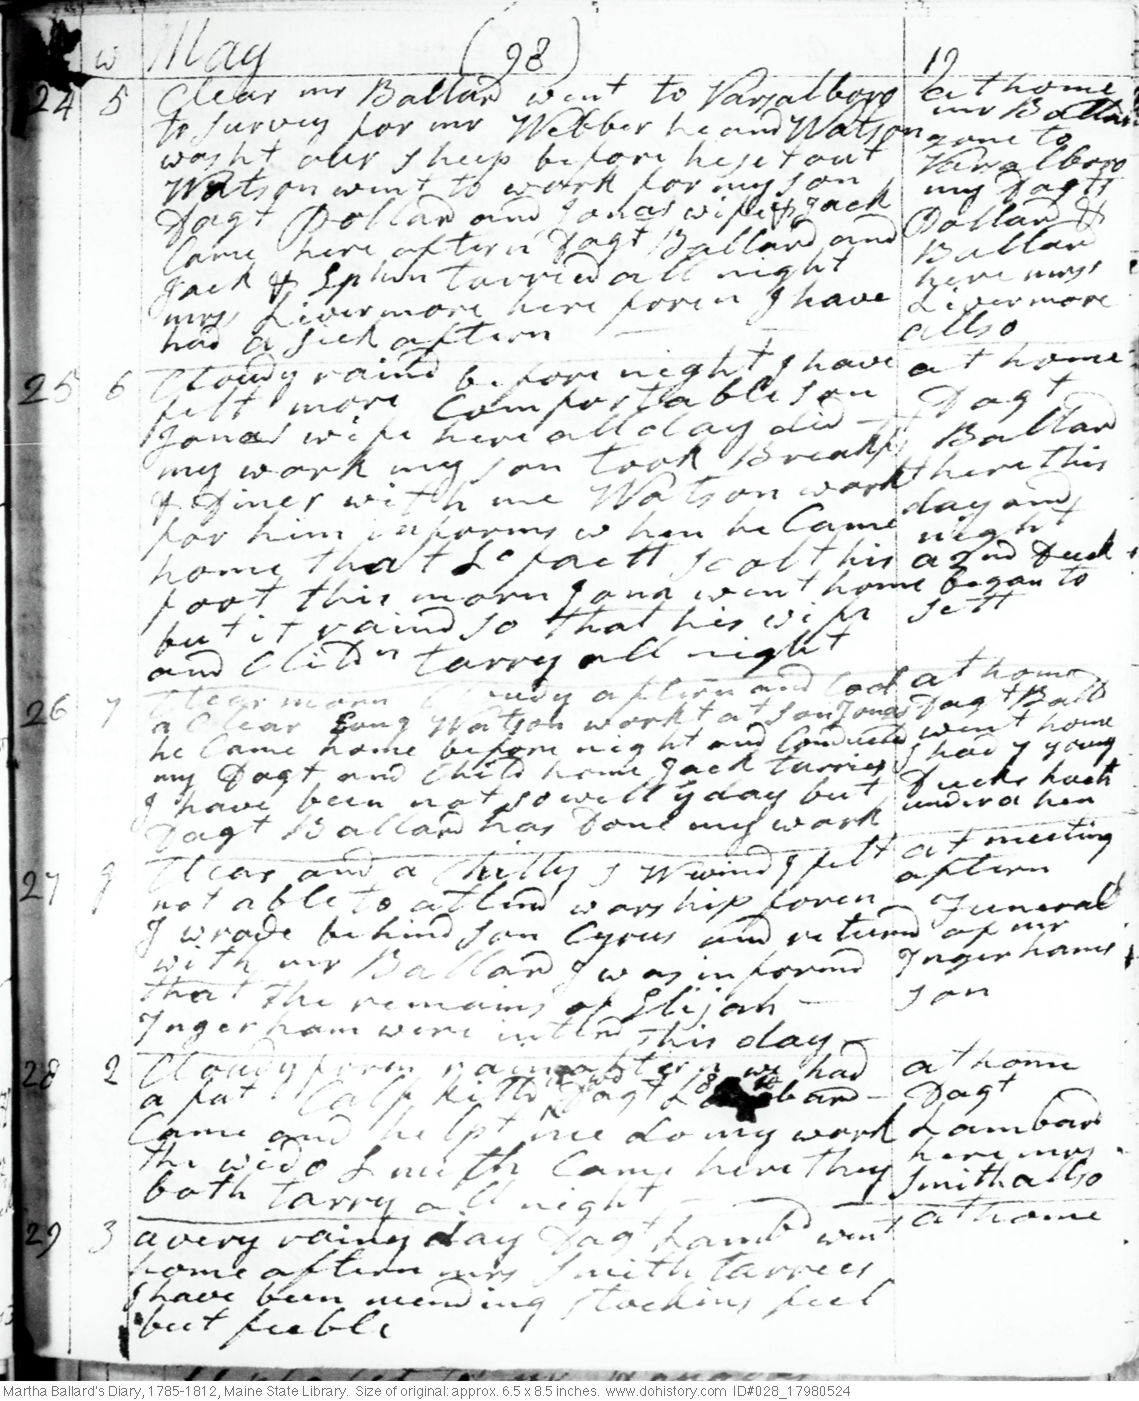 w May (98) 19
24 5 Clear mr Ballard went to Varsalboro
to survey for mr Webber he and Watson
washt our sheep before he set out
Watson went to work for my son
Dagt Pollard and Jonas wife & Jack
Came here aftern Dagt Ballard and
Jack & Ephm tarried all night
mrs Livermore here foren I have
had a sick aftern
at home
mr Ballard
gone to
Varsalboro
my Dagts
Pollard &
Ballard
here mrs
Livermore
allso
25 6 Cloudy raind before night I have
felt more Comfortable son
Jonas wife here all day did
my work my son took Breakft
& Diner with me Watson workt
for him informs when he Came
home that Lt fartt scolt his
foot this morn Jona went home
but it raind so that his wife
and Childn tarry all night
at home
Dagt
Ballard
here this
day and
night
a 2nd Duck
began to
sett
26 7 Clear morn Cloudy aftern and Cool
a Clear Evng Watson workt at son Jonas
he Came home before night and Conducted
my Dagt and Child home Jack tarries
I have been not so well yday but
Dagt Ballard has Done my work
at home
Dagt Balld
went home
I had 7 young
Ducks hacht
under a hen
27 g Clear and a Chilly S W wind I felt
not able to attend worship foren
I wrode behind son Cyrus and returnd
with mr Ballard I was informd
that the remains of Elijah
Ingerham were interd this day
at meeting
aftern
Funeral
of mr
Ingerhams
son
28 2 Cloudy foren rain aftern we had
a fat Calf killd wd 88 lb Dagt Lambard
Came and helpt me do my work
the wido Smith Came here they
both tarry all night
at home
Dagt
Lambard
here mrs
Smith allso
29 3 a very rainy day Dagt Lambd went
home aftern mrs Smith tarries
I have been mending stockins feel
but feeble
at home
Martha Ballard's Diary, 1785-1812, Maine State Library. Size of original: approx. 6.5 x 8.5 inches. www.dohistory.com ID#028_17980524